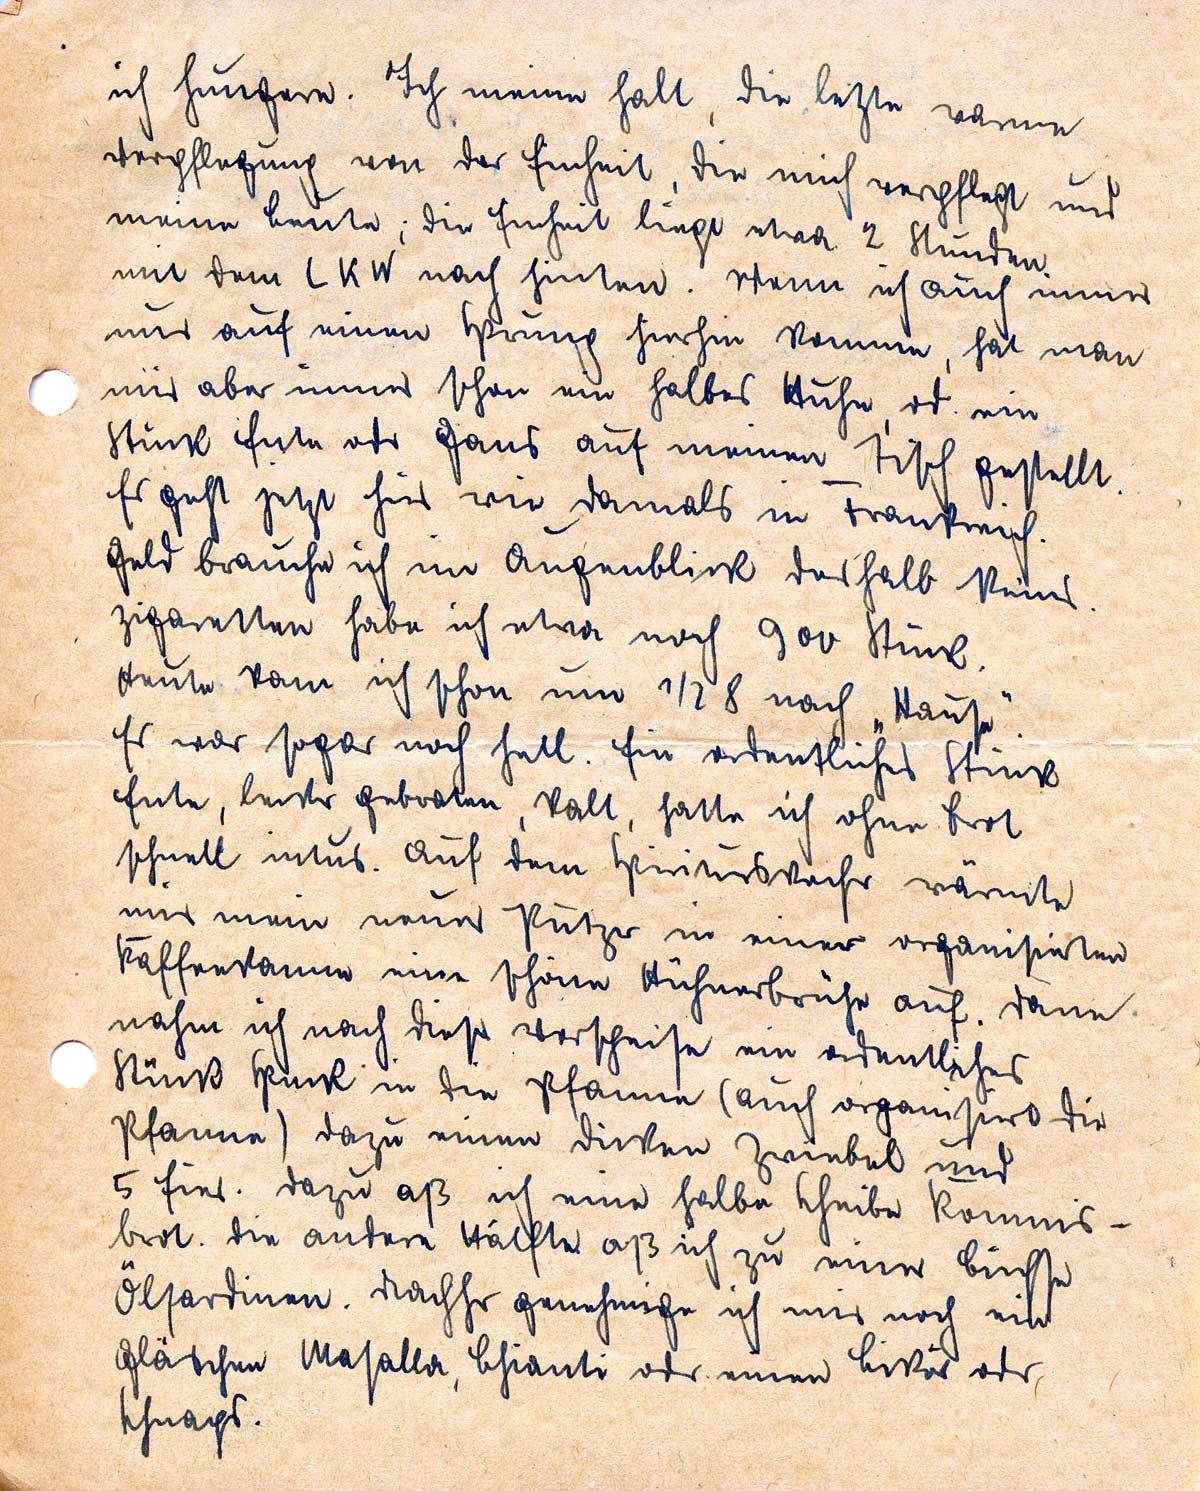 ich hungere. Ich meine halt, die letzte warme
Verpflegung von der Einheit, die mich verpflegt und
meine Leute; die Einheit liegt etwa 2 Stunden
mit dem LKW nach hinten. Wenn ich auch immer
nur auf einen Sprung hierhin komme, hat man
mir aber immer schon ein halbes Huhn od. ein
Stück Ente oder Gans auf meinen Tisch gestellt.
Es geht jetzt hier wie damals in Frankreich.
Geld brauche ich im Augenblick deshalb keines.
Zigaretten habe ich etwa noch 900 Stück.
Heute kam ich schon um 1/2 8 nach „Hause".
Es war sogar noch hell. Ein ordentliches Stück
Ente, lecker gebraten, kalt, hatte ich ohne Brot
schnell intus. Auf dem Spirituskocher wärmte
mir mein neuer Putzer in einer organisierten
Kaffeekanne eine schöne Hühnerbrühe auf. Dann
nahm ich nach dieser Vorspeise ein ordentliches
Stück Speck in die Pfanne (auch organisiert die
Pfanne) dazu einen dicken Zwiebel und
5 Eier. Dazu aß ich eine halbe Scheibe Kommis-
brot. Die andere Hälfte aß ich zu einer Büchse
Ölsardinen. Nachher genehmige ich mir noch ein
Gläschen Masalla, Chianti oder einen Likör oder
Schnaps.